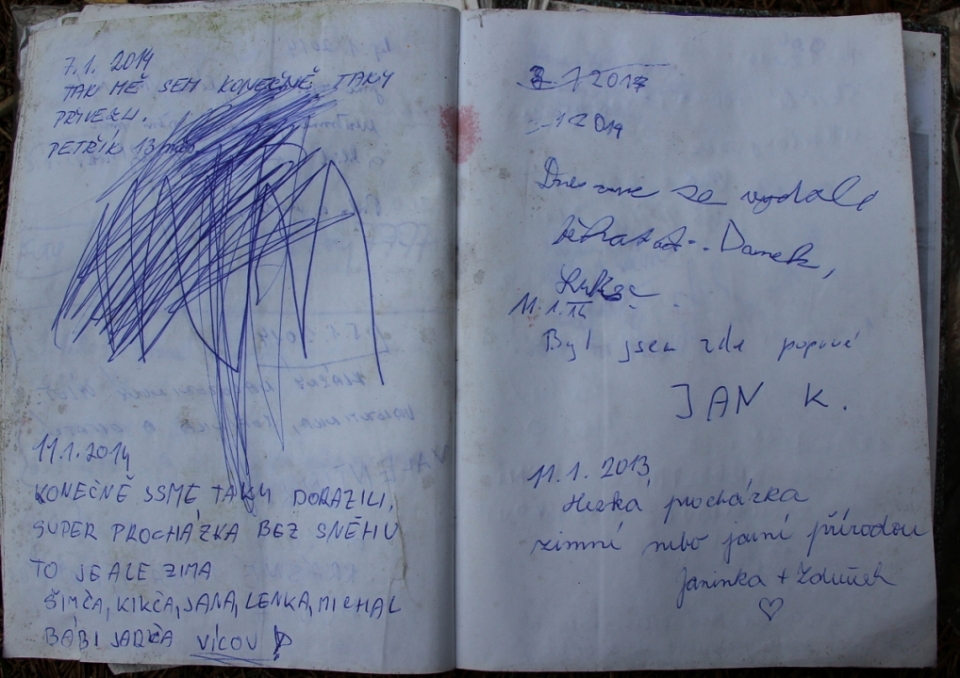 7.1. 2014
TAK MĚ SEM KONEČNĚ TAKY
PŘIVEZLI.
PETŘÍK 13
11.1.2014
KONEČNĚ JSME TAKY DORAZILI,
SUPER PROCHÁZKA BEZ SNĚHU
TO JE ALE ZIMA
ŠIMČA, KIKČA, JANA, LENKA, MICHAL
BÁBI JARČA VÍCOV
7 2017
1 2014
Dnes jsme se vydali
Damek,
11.1.14
Byl jsem zde poprvé
JAN K.
11.1.2013
Hezká procházka
zimní nebo jarní přírodou
Janinka + Zdeněk